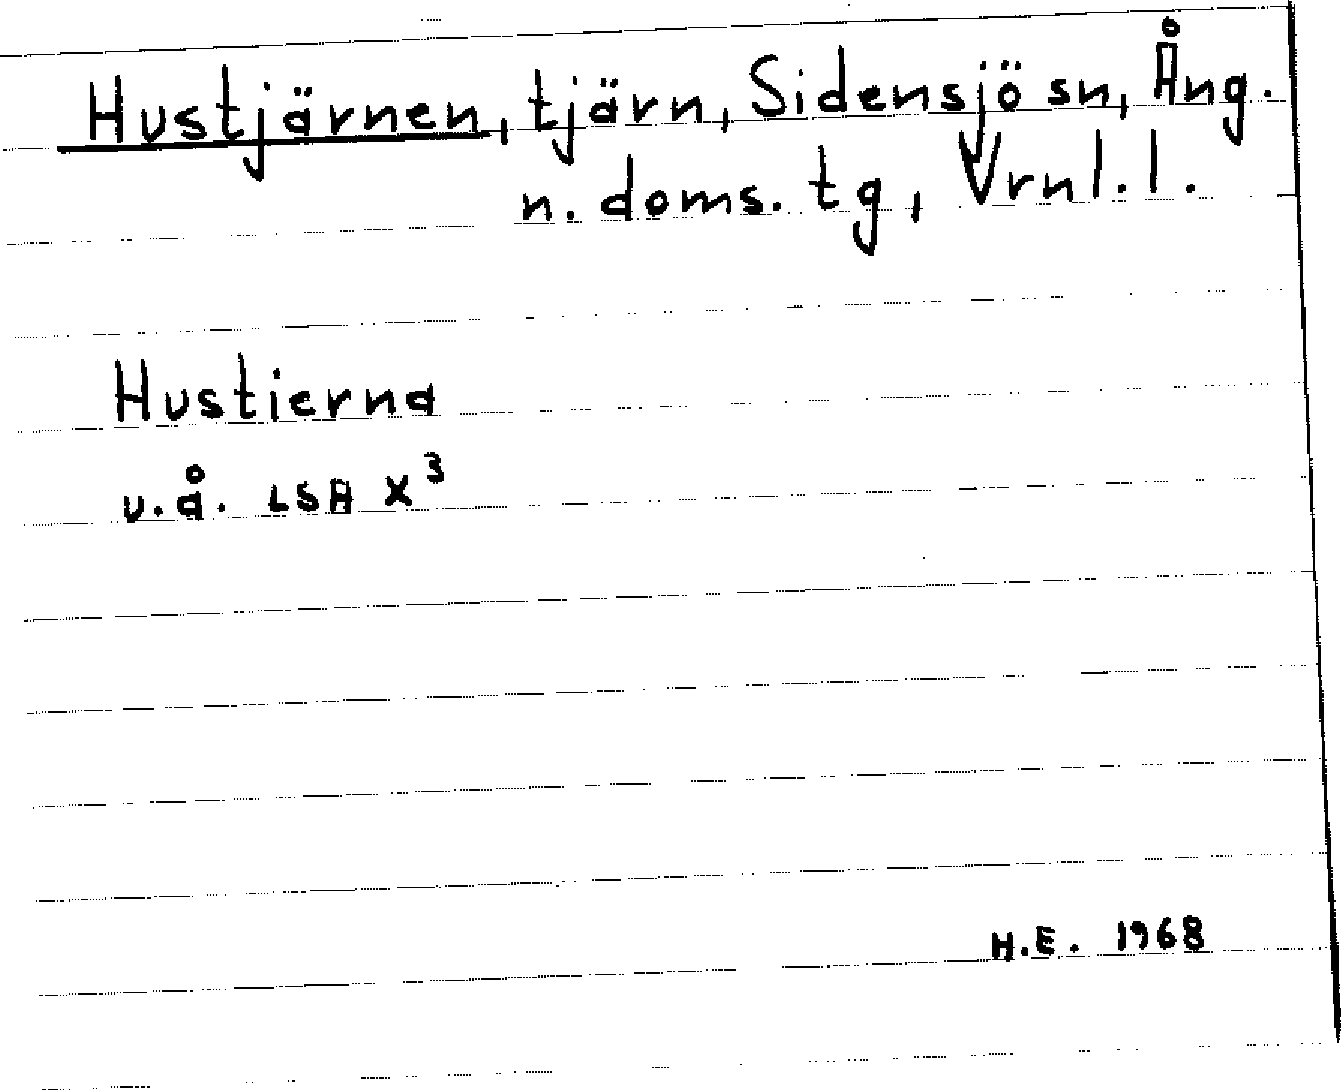 Hustjärnen, tjärn, Sidensjö sn, Ång.
n. doms. tg, Vrnl. l.
Hustierna
u.å. LSA X³
H.E. 1968